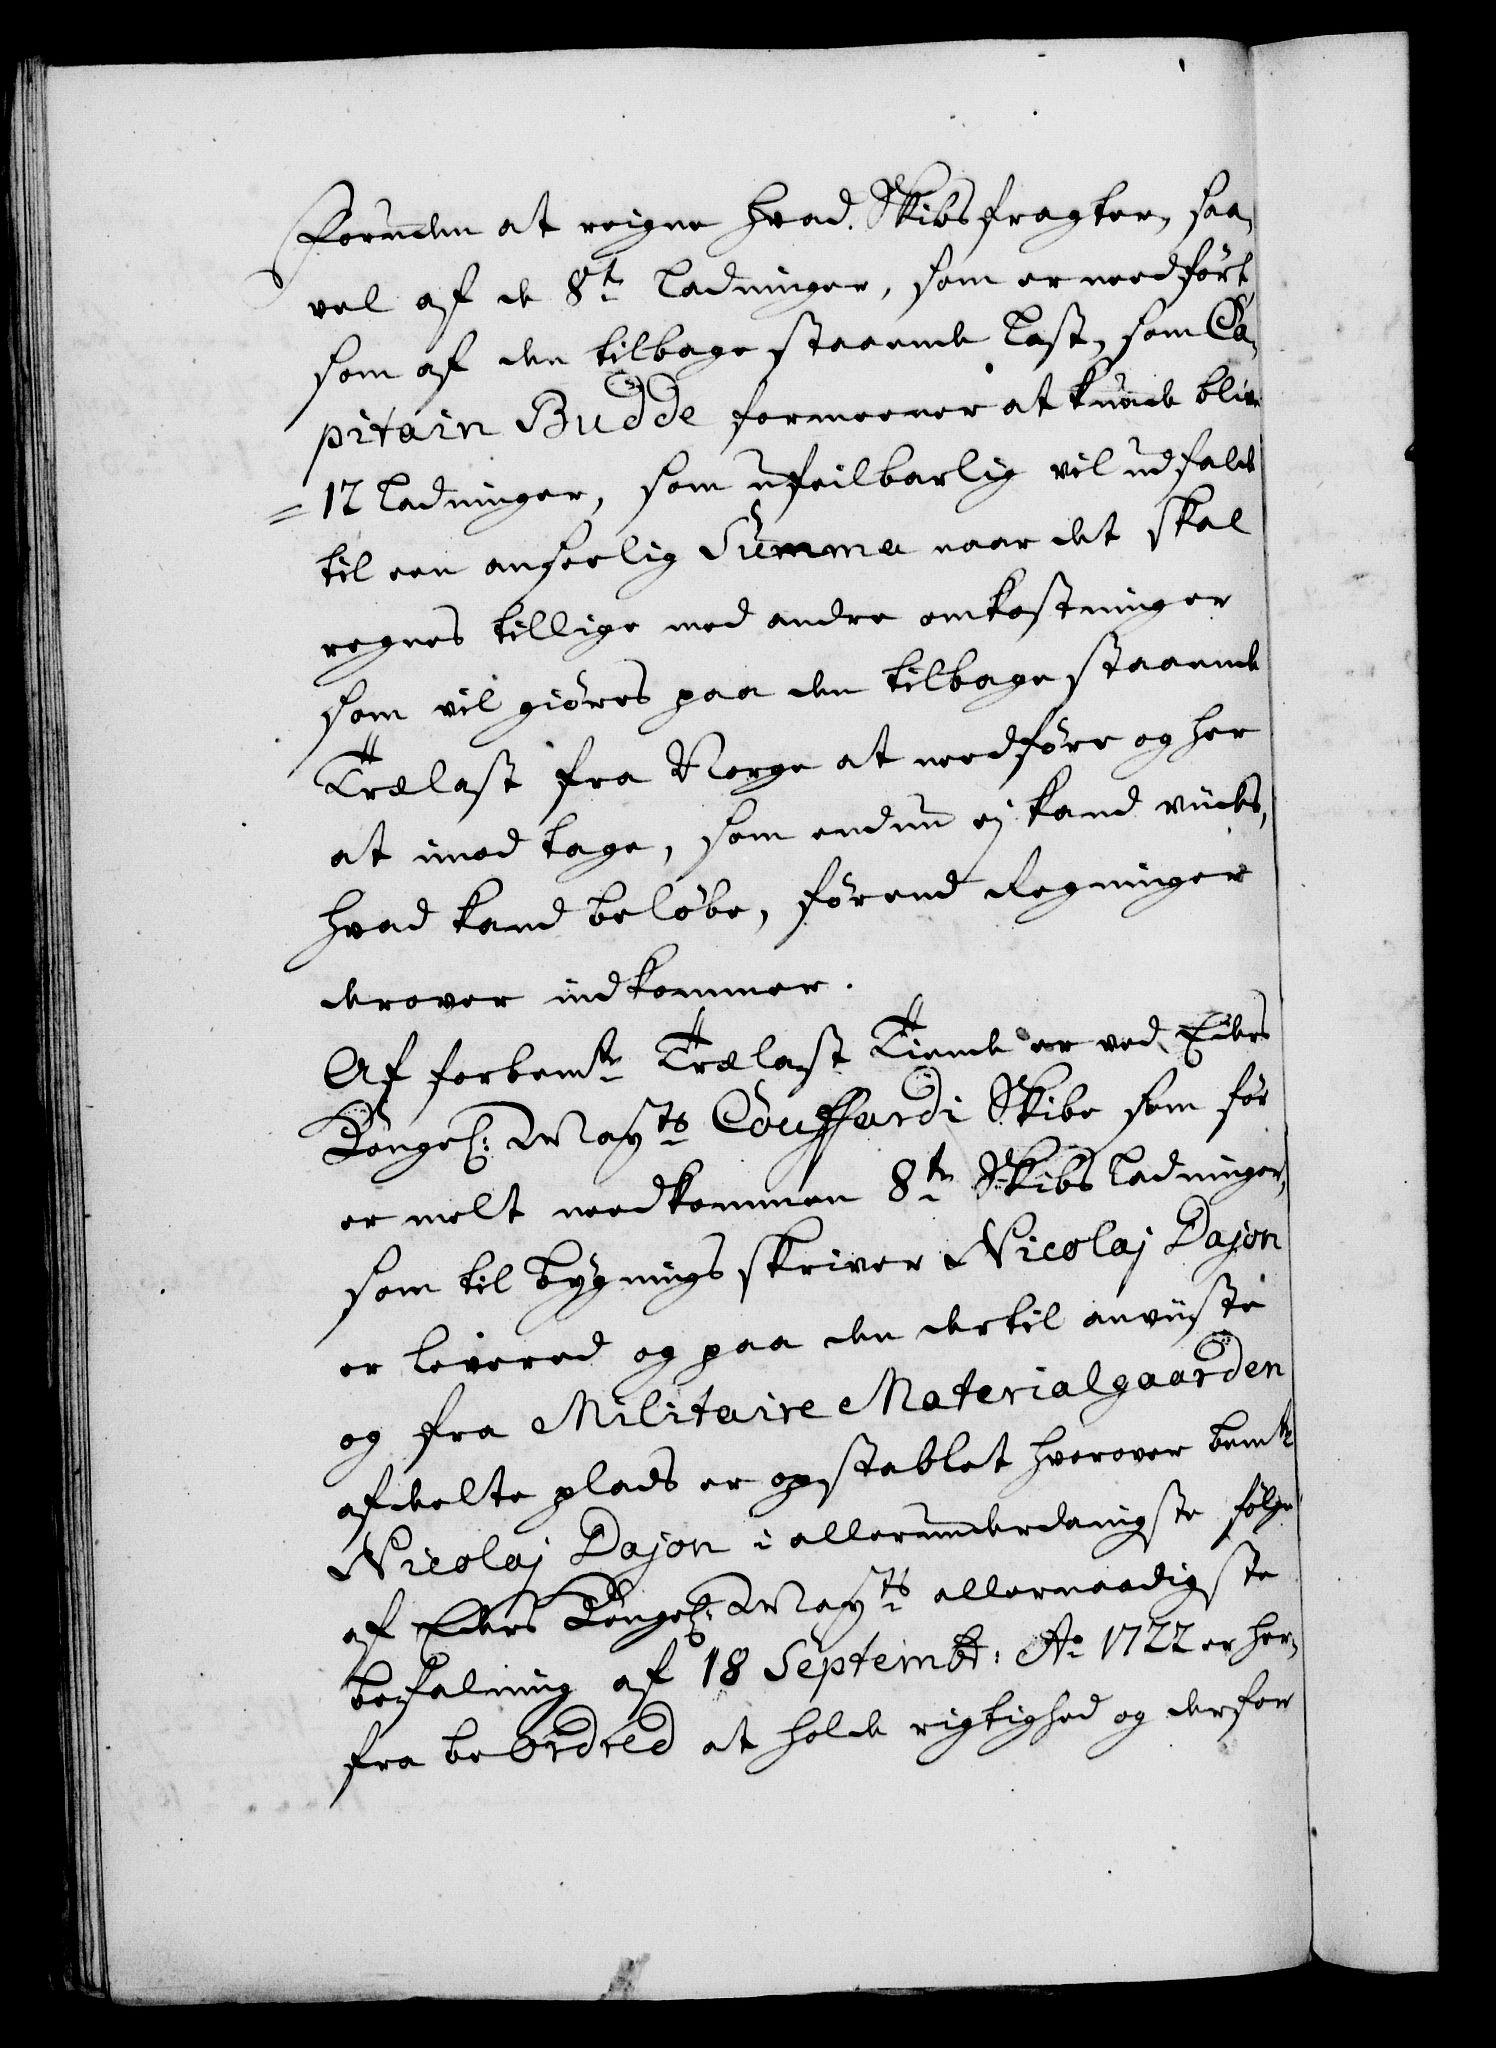 Foruden at reigne hvad Skibsfragter, saa,
vel af de 8te Ladninger, som er needført,
som af den tilbage staaende Last, som Ca,
pitain Budde formeener at kunde blive
= 12 Ladninger, som ufeilbarlig vil udfalde
til een anseelig Summa naar det skal
regnes tillige med andre omkostninger
som vil giöres paa den tilbage staaende
Trælast fra Norge at needföre og her
at imod tage, som endnu ej kand vides,
hvad kand beløbe, förend Regninger
derover indkommer.
Af forbemte Trælast Tiende er ved Eders
Kongel: Mayts Couffardi Skibe som för
er melt needkommen 8te Skibs Ladninger,
som til bygnings skriver Nicolaj Dajon
er levered og paa den dertil anviiste
og fra Militaire Materialgaarden
afdeelte plads er opstablet hvorover bemte
Nicolaj Dajon i allerunderdanigste følge
af Eders Kongel: Mayts allernaadigste
befalning af 18 Septembr: Ao 1722 er her,
fra beordred at holde rigtighed og derfor